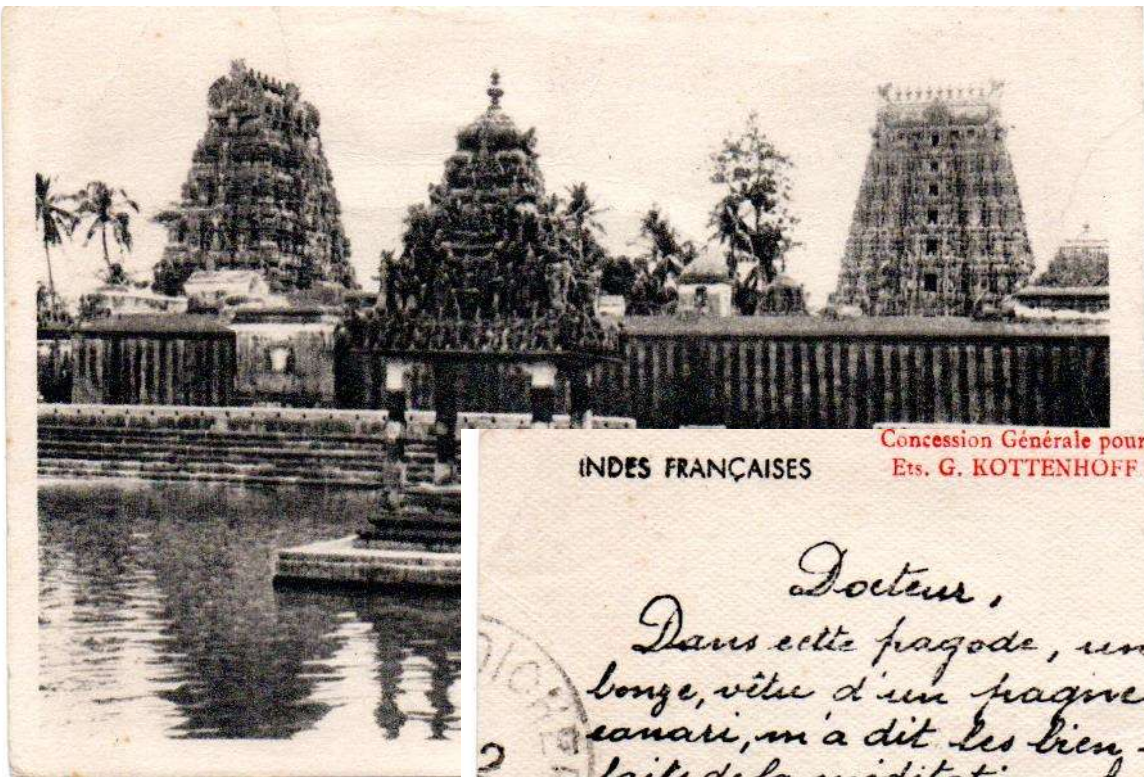 INDES FRANÇAISES
Concession Générale pour
Ets. G. KOTTENHOFF
Docteur,
Dans cette pagode, un
bonze, vêtu d'un pagne
canari, m'a dit les bien-
faits de la méditation
DICHE
2